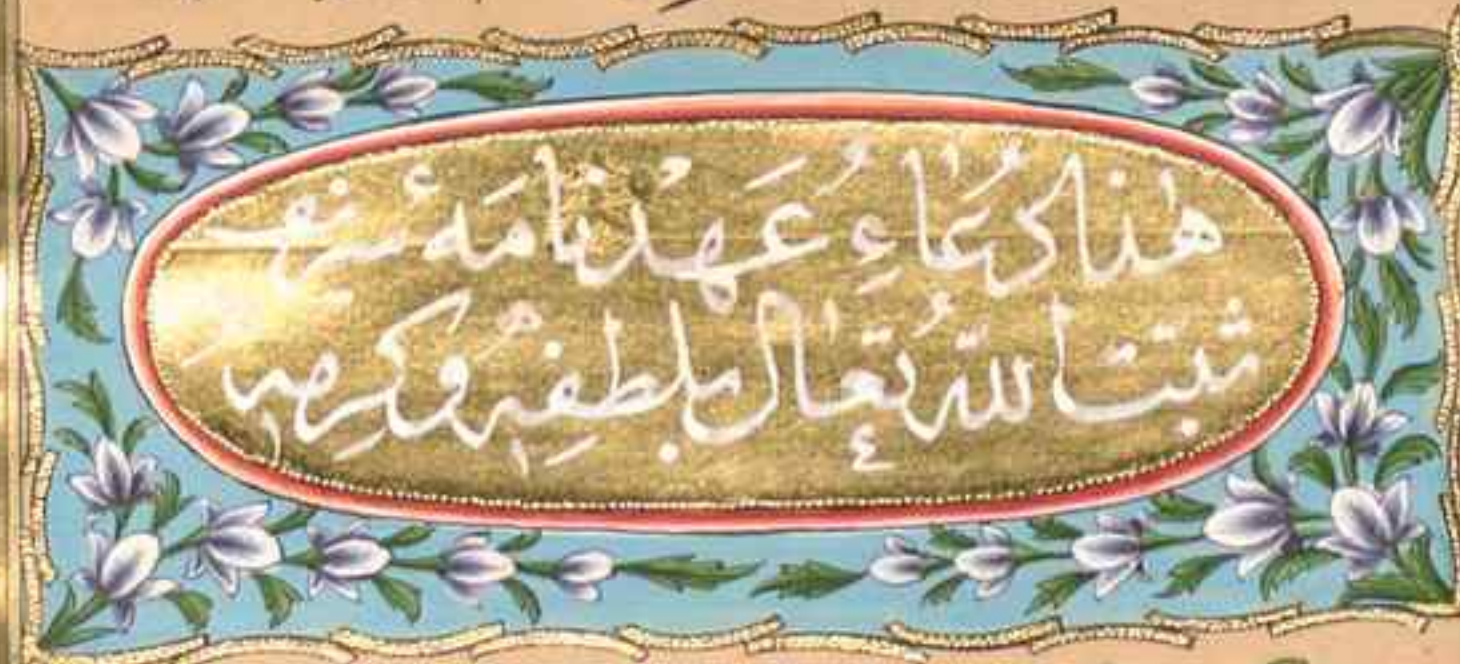 هٰذا دُعَاءِ عَهْدْنَامَۀ شريف
ثبتنا اللّٰهُ تَعَالٰى بلطفِهِ وَكَرمِهِ